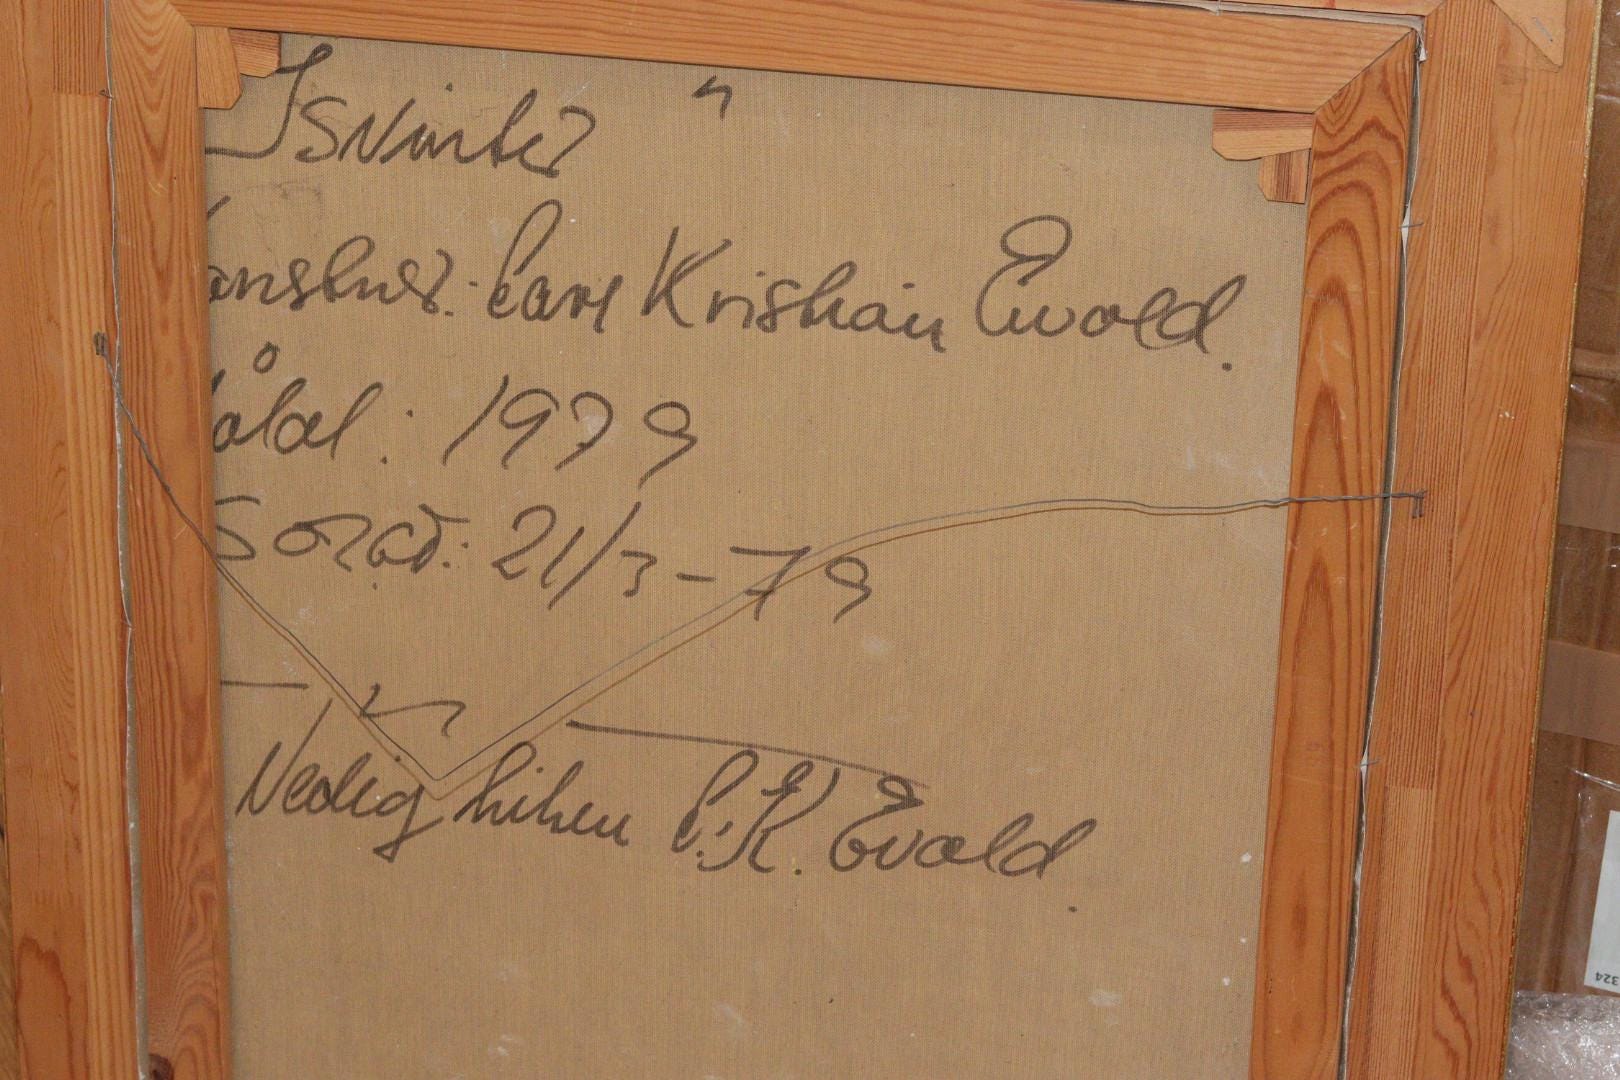 Isvinter"
Konstnär: Carl Kristian Ewald.
Målad: 1979
Sorád: 21/3-79
Vedig hihen C.K. Ewald.
324